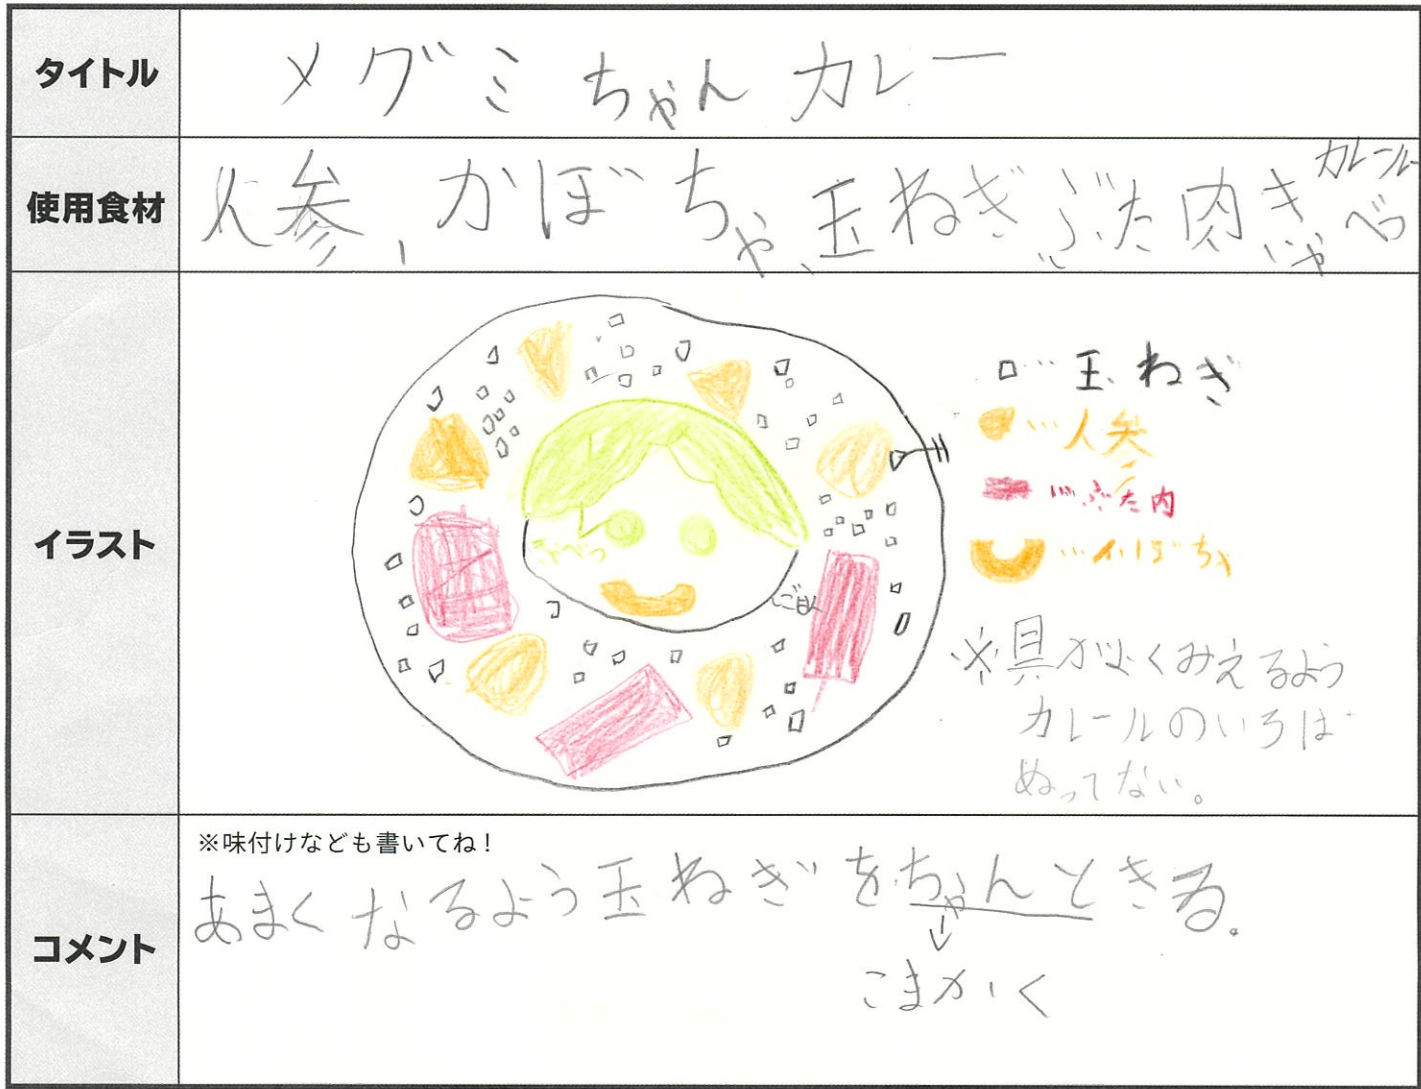 タイトル
メグミちゃんカレー
使用食材
人参、かぼちゃ、玉ねぎ、ぶた肉、きゃべつ
カレールー
イラスト
□…玉ねぎ
…人参
…ぶた肉
…かぼちゃ
きゃべつ
ごはん
※具がよくみえるよう
カレールのいろは
ぬってない。
コメント
※味付けなども書いてね！
あまくなるよう玉ねぎをちゃんときる。
↓
こまかく